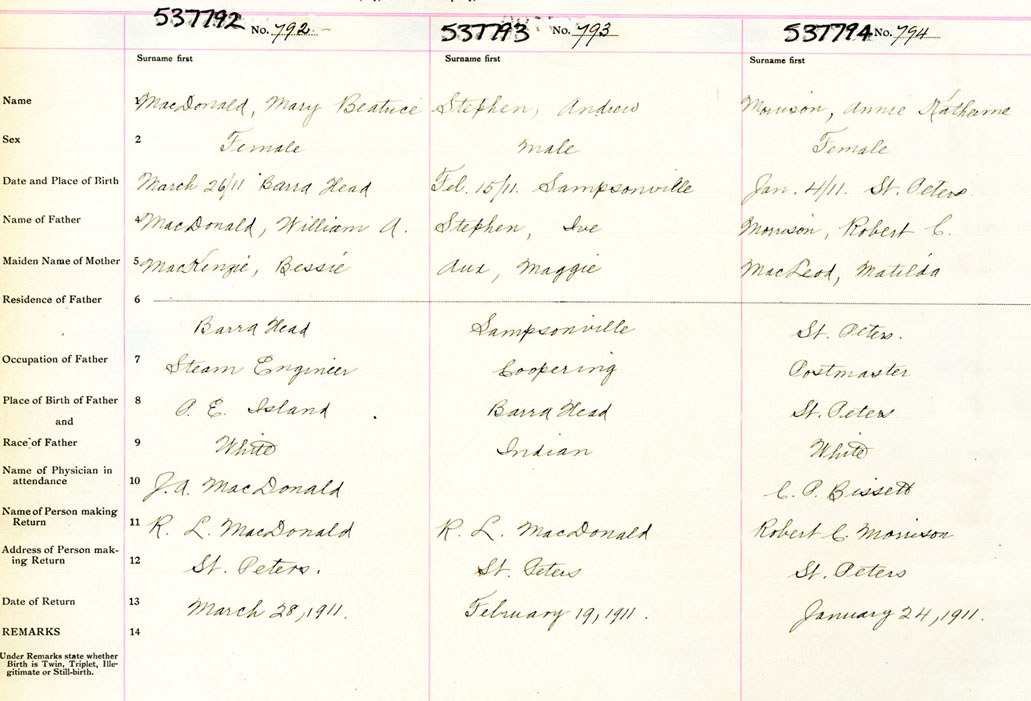 537792 No. 792 537793 No. 793 537794 No. 794
Surname first Surname first Surname first
Name 1 MacDonald, Mary Beatrice Stephen, Andrew Morrison, Annie Katherine
Sex 2 Female Male Female
Date and Place of Birth 3 March 26/11 Barra Head Feb. 15/11. Sampsonville Jan. 4/11. St. Peters.
Name of Father 4 MacDonald, William A. Stephen, Ive Morrison, Robert C.
Maiden Name of Mother 5 MacKenzie, Bessie Maggie MacLeod, Matilda
Residence of Father 6
Barra Head Sampsonville St. Peters.
Occupation of Father 7 Steam Engineer Coopering Postmaster
Place of Birth of Father 8 P. E. Island Barra Head St. Peters
and
Race of Father 9 White Indian White
Name of Physician in
attendance 10 J. A. MacDonald C. P. Bissett
Name of Person making
Return 11 R. L. MacDonald R. L. MacDonald Robert C. Morrison
Address of Person mak-
ing Return 12 St. Peters. St. Peters St. Peters
Date of Return 13 March 28, 1911. February 19, 1911. January 24, 1911.
REMARKS 14
Under Remarks state whether
Birth is Twin, Triplet, Ille-
gitimate or Still-birth.